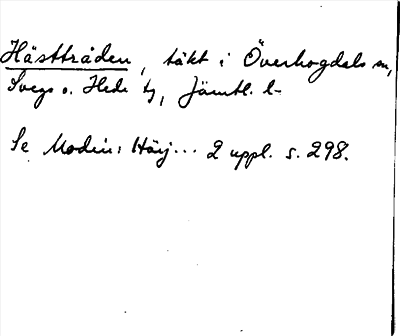 Hästtråden, täkt i Överhogdals sn,
Svegs o. Hede tg, Jämtl. l-
Se Modin: Härj... 2 uppl. s. 298.